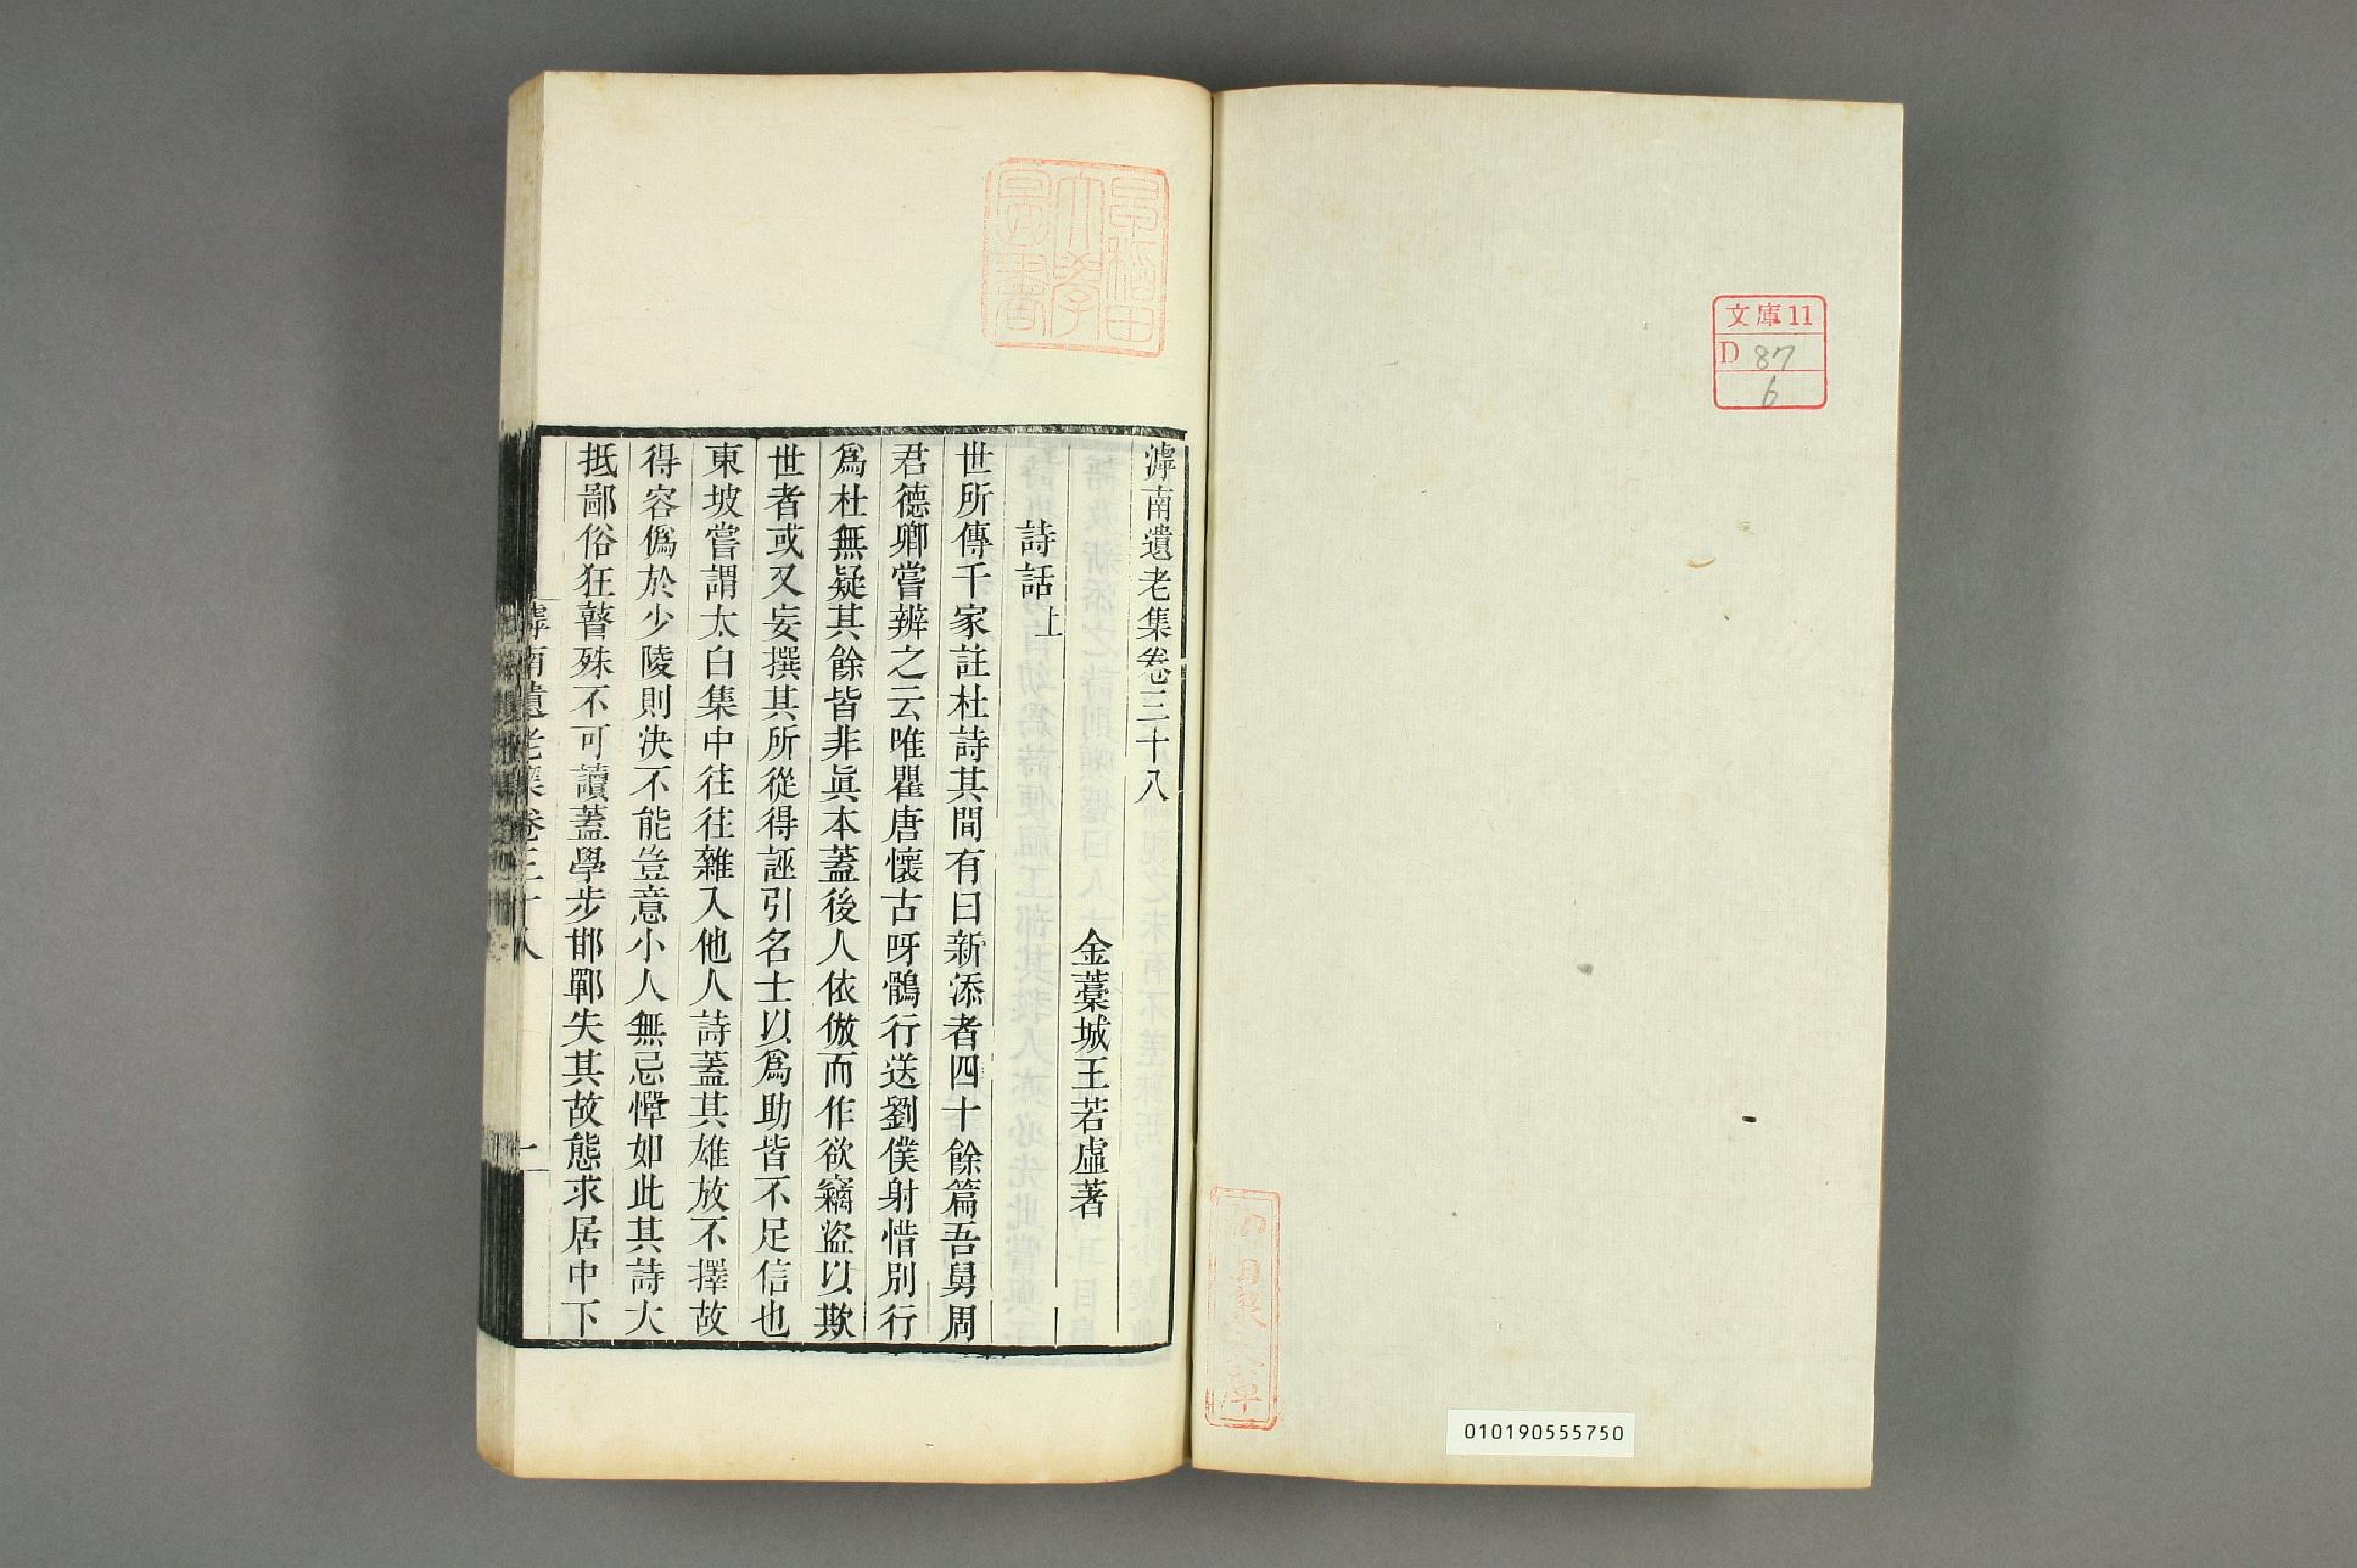 文庫11
D 87
6
010190555750
早稲田
大學
圖書
滹南遺老集卷三十八
金藁城王若虛著
詩話上
世所傳千家註杜詩其間有曰新添者四十餘篇吾舅周
君德卿嘗辨之云唯瞿唐懷古呀鶻行送劉僕射惜別行
爲杜無疑其餘皆非眞本蓋後人依倣而作欲竊盜以欺
世者或又妄撰其所從得誣引名士以爲助皆不足信也
東坡嘗謂太白集中往往雜入他人詩蓋其雄放不擇故
得容僞於少陵則決不能豈意小人無忌憚如此其詩大
抵鄙俗狂瞽殊不可讀蓋學步邯鄲失其故態求居中下
滹南遺老集卷三十八
一